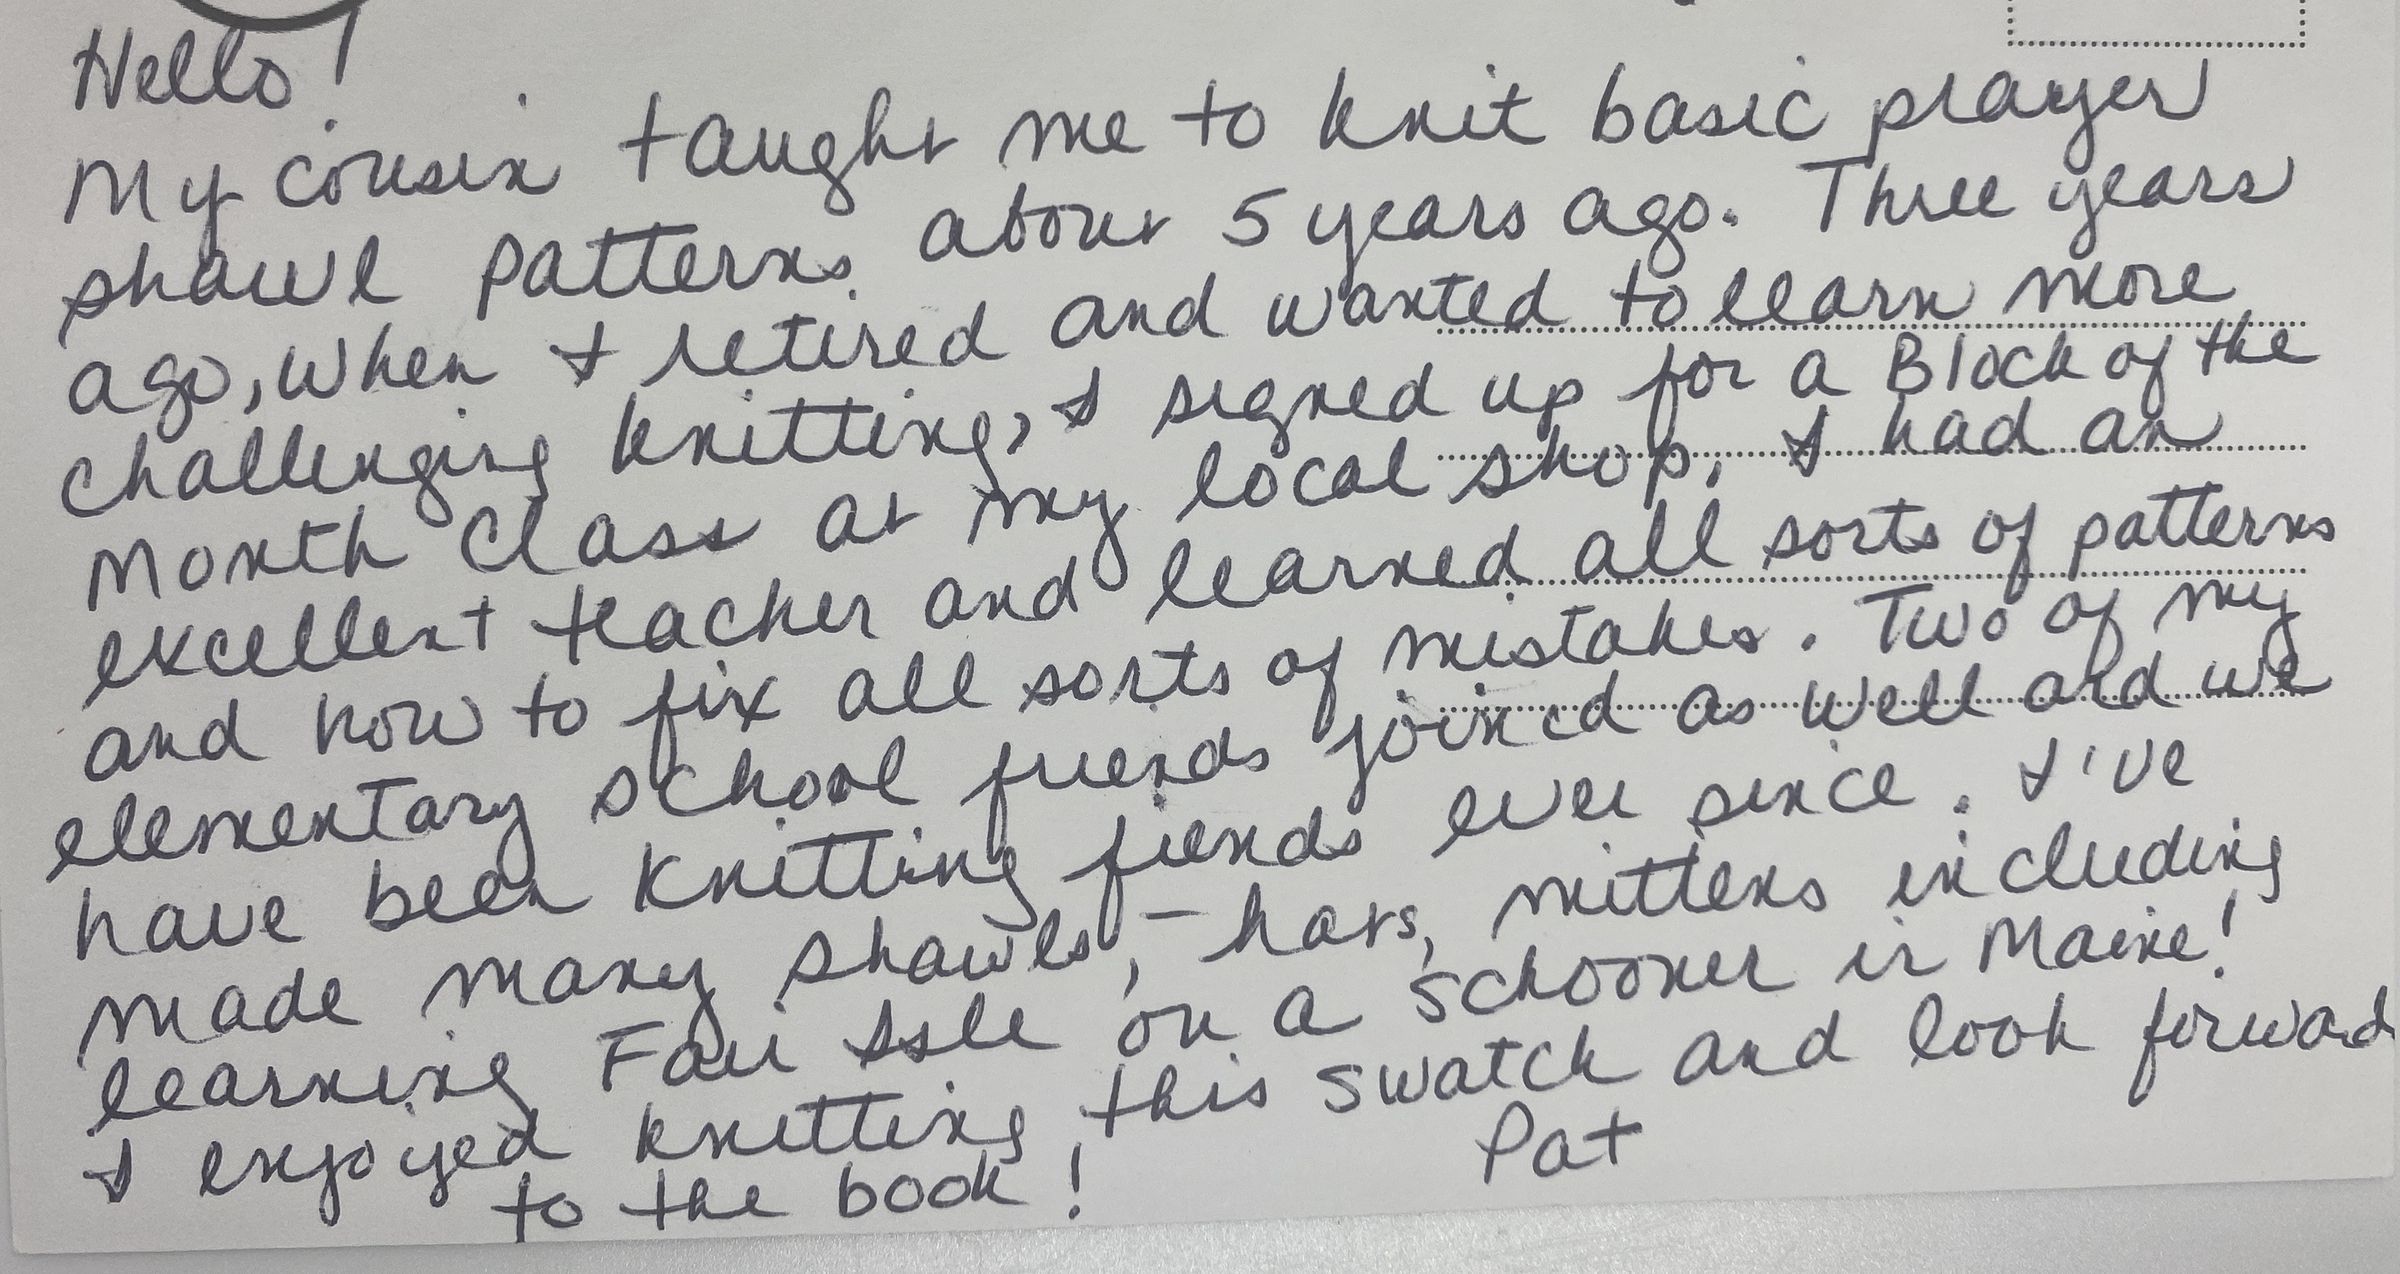 Hello!
My cousin taught me to knit basic prayer
shawl patterns about 5 years ago. Three years
ago, when I retired and wanted to learn more
challenging knitting, I signed up for a Block of the
Month Class at my local shop. I had an
excellent teacher and learned all sorts of patterns
and how to fix all sorts of mistakes. Two of my
elementary school friends joined as well and we
have been knitting fiends ever since. I've
made many shawls, - hats, mittens including
learning Fair Isle on a schooner in Maine!
I enjoyed knitting this swatch and look forward
to the book!
Pat